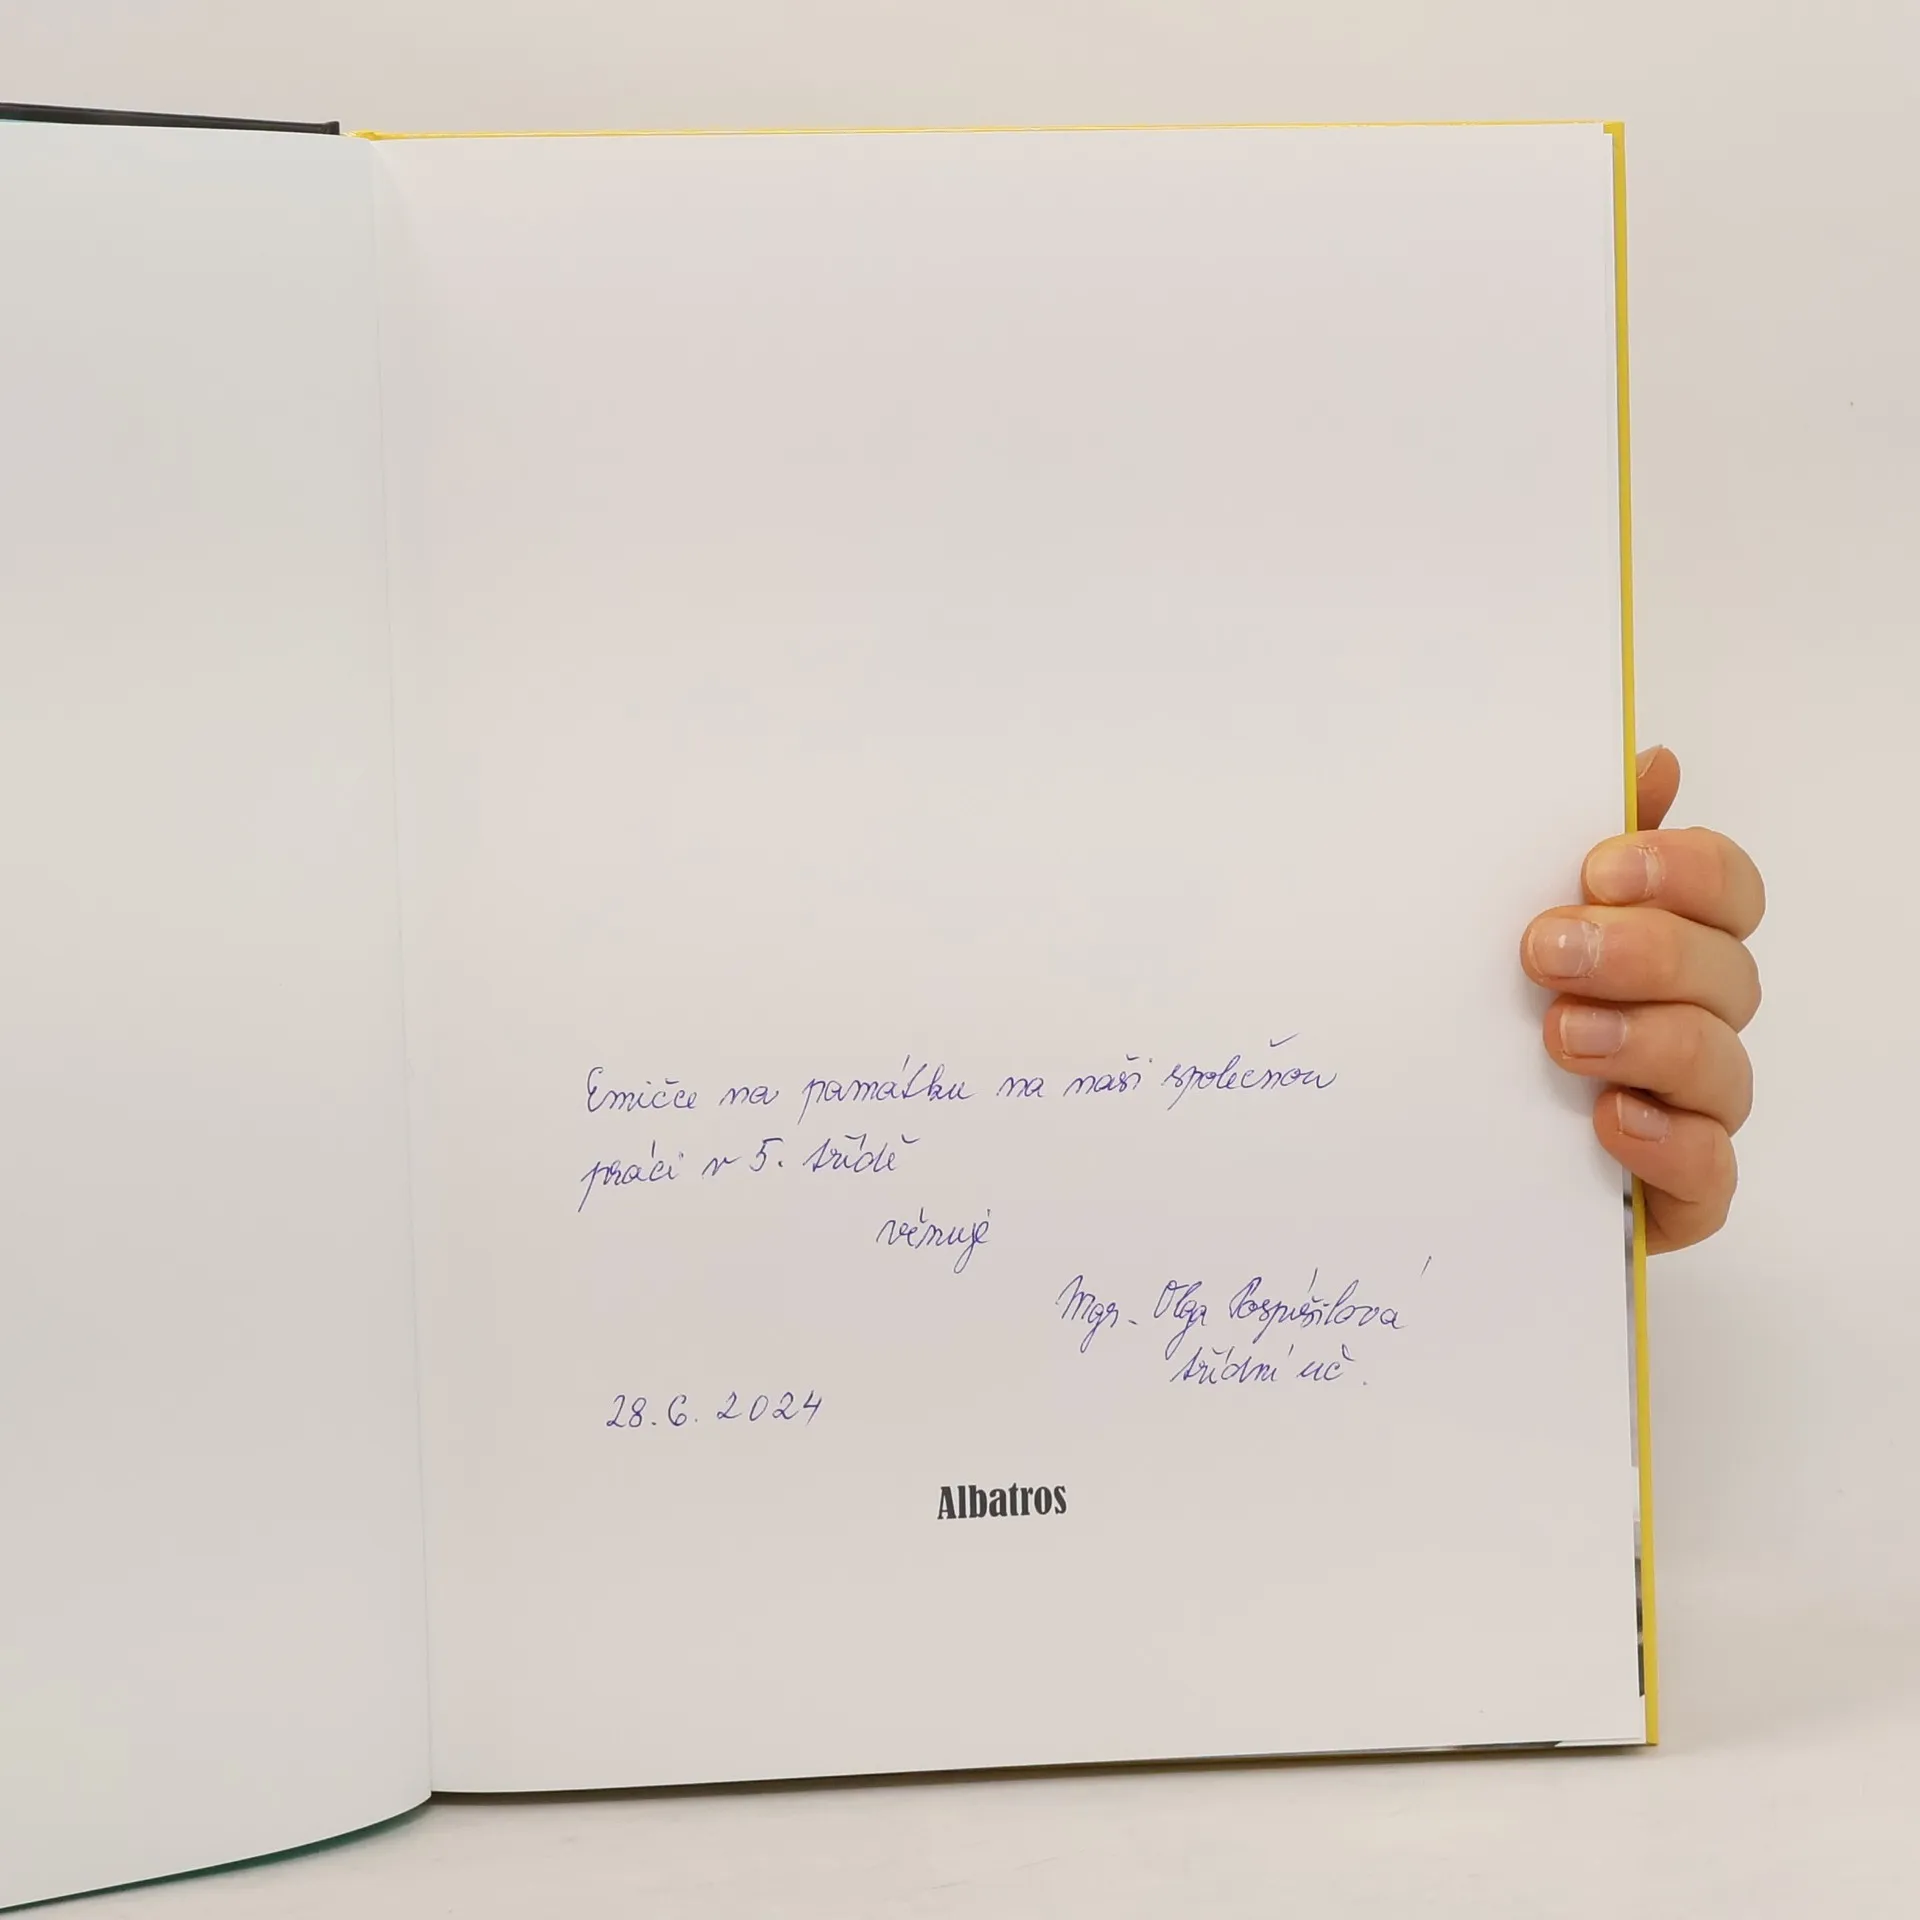 Emičce na památku na naši společnou
práci v 5. třídě
věnuje
Mgr. Olga Pospíšilová
třídní uč.
28. 6. 2024
Albatros